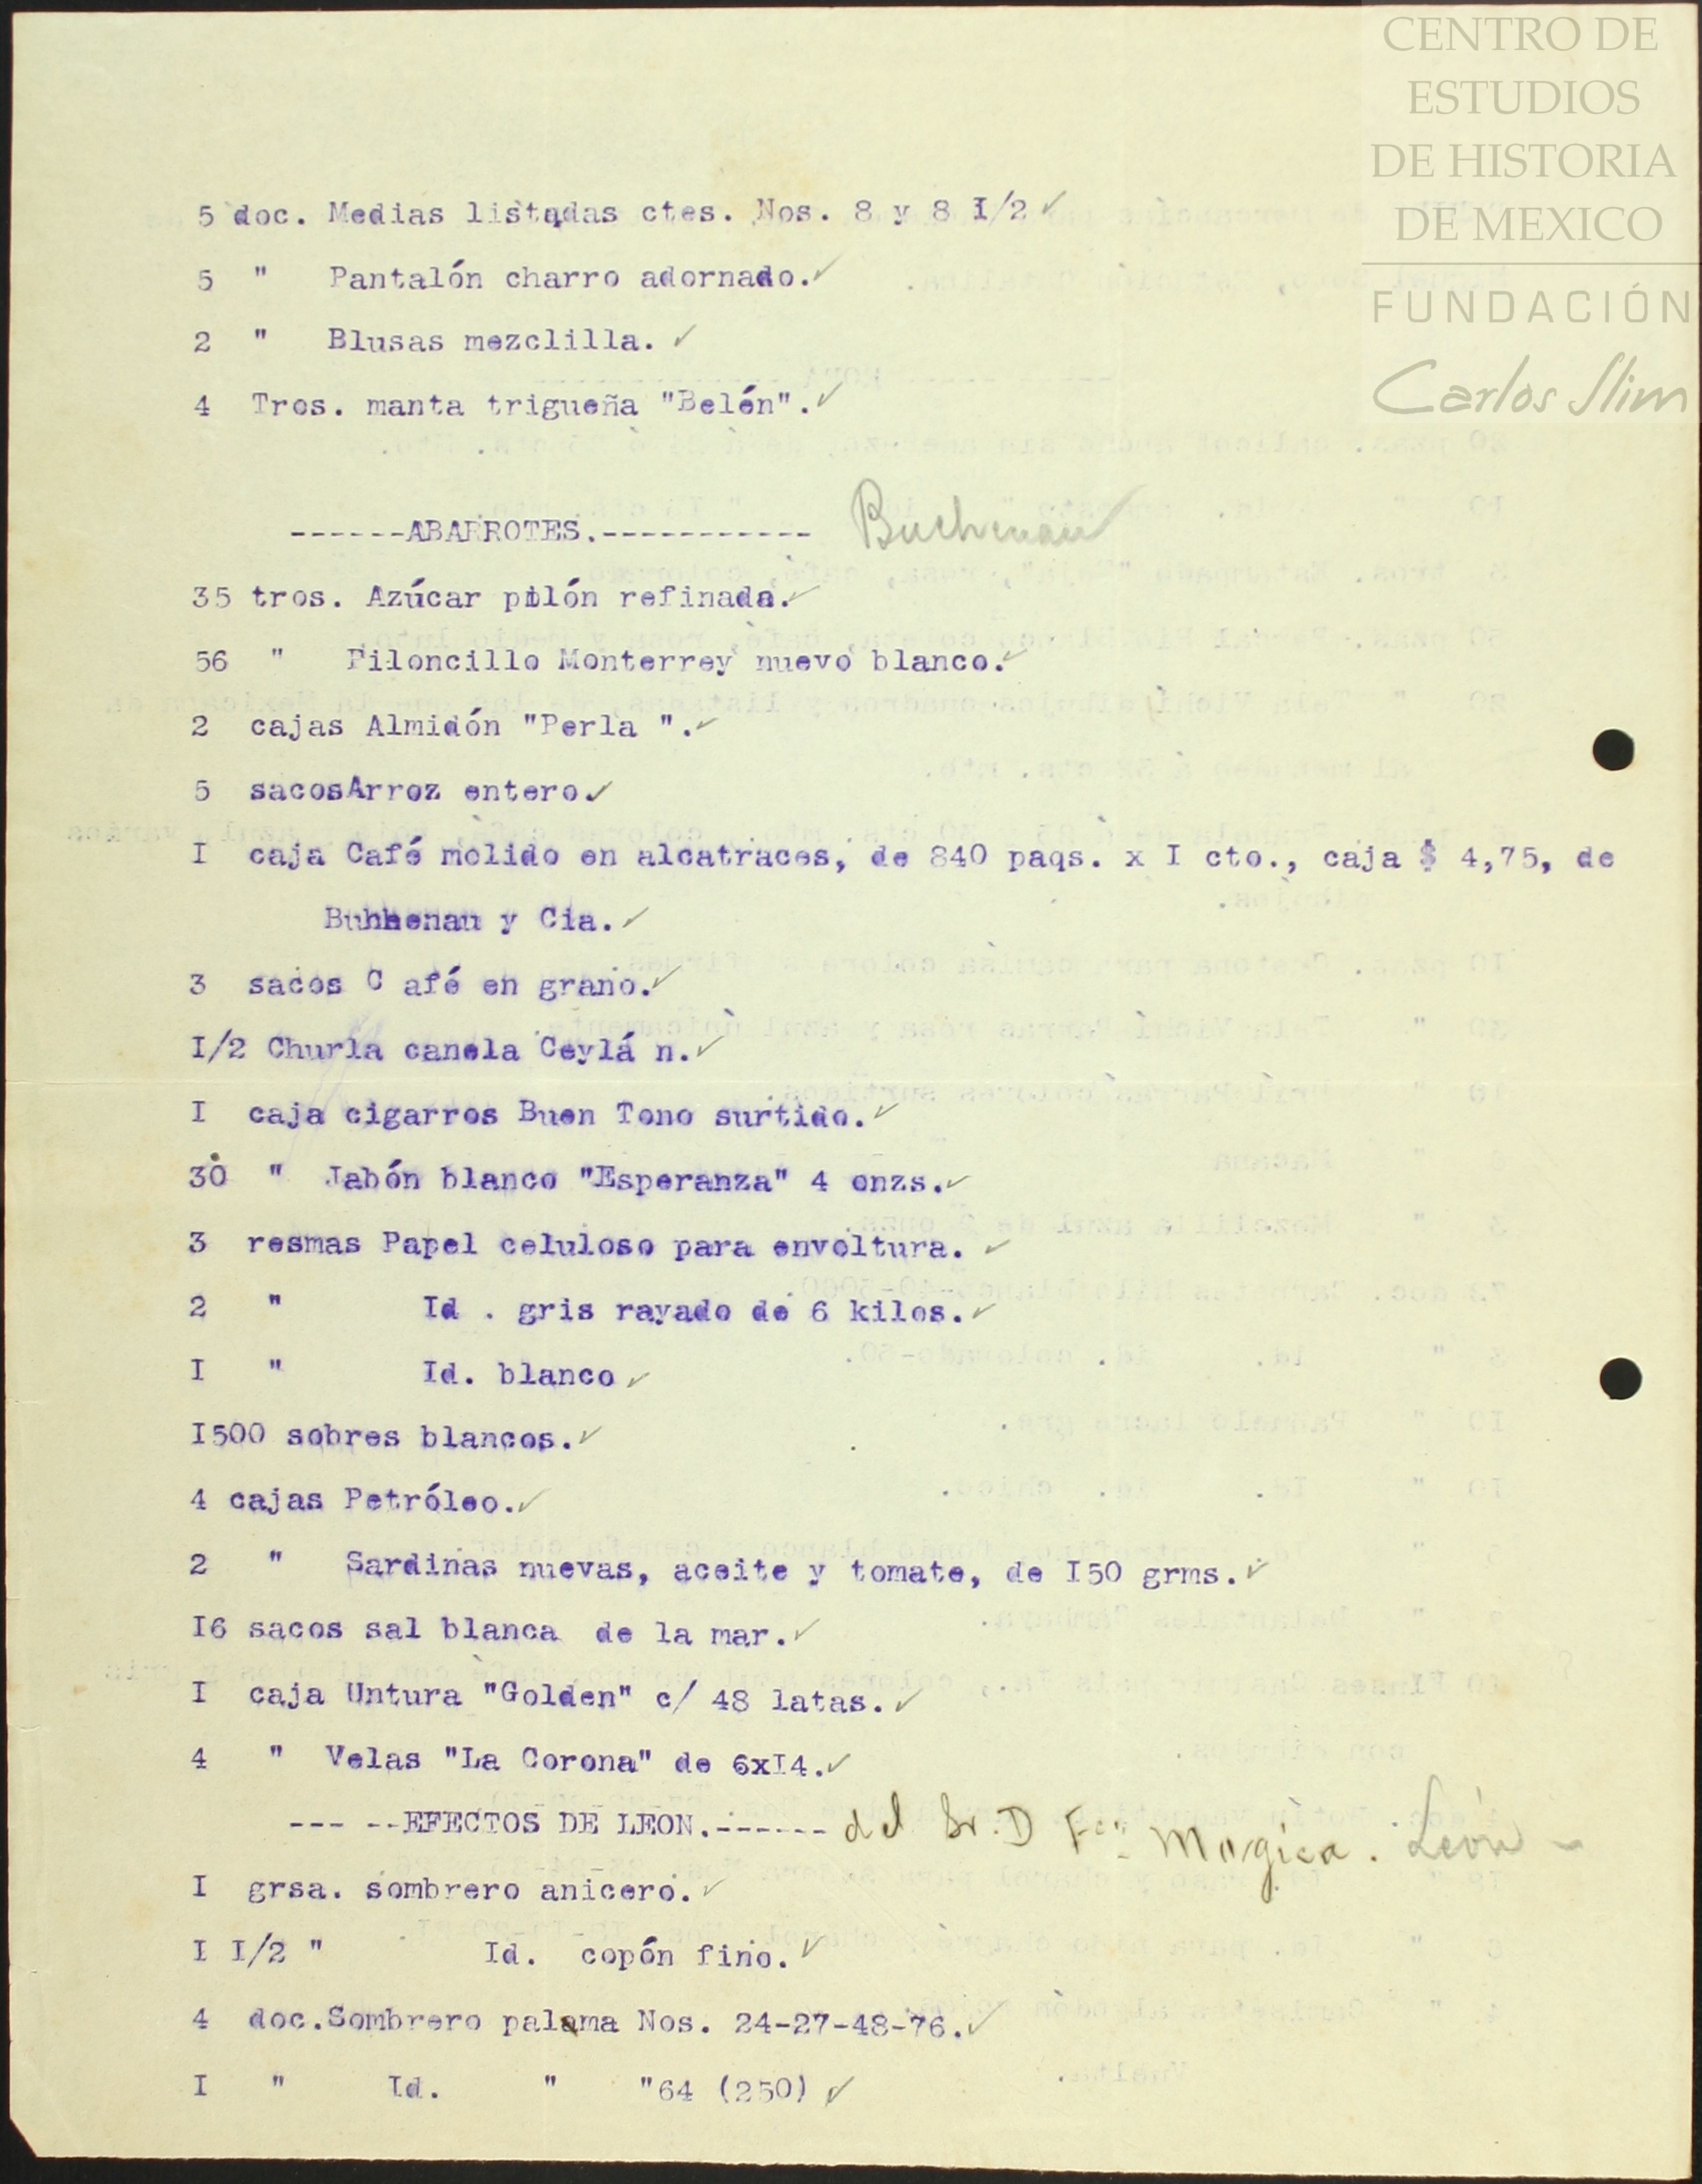 CENTRO DE
ESTUDIOS
DE HISTORIA
DE MEXICO
FUNDACIÓN
Carlos Slim
5 doc. Medias listadas ctes. Nos. 8 y 8 I/2 ✓
5 " Pantalón charro adornado. ✓
2 " Blusas mezclilla. ✓
4 Tros. manta trigueña "Belén". ✓
------ABARROTES.----------- Buchenau
35 tros. Azúcar pilón refinada. ✓
56 " Piloncillo Monterrey nuevo blanco. ✓
2 cajas Almidón "Perla ". ✓
5 sacosArroz entero. ✓
I caja Café molido en alcatraces, de 840 paqs. x I cto., caja $ 4,75, de
Buhhenau y Cia. ✓
3 sacos C afé en grano. ✓
I/2 Churla canela Ceylá n. ✓
I caja cigarros Buen Tono surtido. ✓
30 " Jabón blanco "Esperanza" 4 onzs. ✓
3 resmas Papel celuloso para envoltura. ✓
2 " Id . gris rayado de 6 kilos. ✓
I " Id. blanco ✓
I500 sobres blancos. ✓
4 cajas Petróleo. ✓
2 " Sardinas nuevas, aceite y tomate, de I50 grms. ✓
I6 sacos sal blanca de la mar. ✓
I caja Untura "Golden" c/ 48 latas. ✓
4 " Velas "La Corona" de 6xI4. ✓
--- --EFECTOS DE LEON.------ del Sr. D Fco. Mugica. León -
I grsa. sombrero anicero. ✓
I I/2 " Id. copón fino. ✓
4 doc.Sombrero palama Nos. 24-27-48-76. ✓
I " Id. " "64 (250) ✓